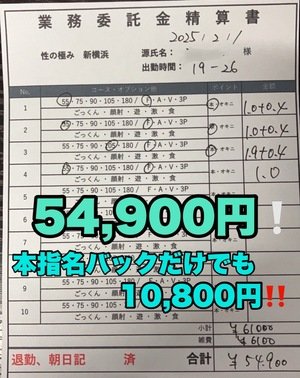 業務委託金精算書
2025/2/1/
性の極み 新横浜 源氏名: 様
出勤時間: 19-26
No. コース・オプション他 ポイント 金額
1 55・75・90・105・180 / F・A・V・3P 本・オキニ 1.0+0.4
ごっくん・顔射・遊・激・食
2 55・75・90・105・180 / F・A・V・3P 本・オキニ 1.0+0.4
ごっくん・顔射・遊・激・食
3 55・75・90・105・180 / F・A・V・3P 本・オキニ 1.9+0.4
ごっくん・顔射・遊・激・食
4 55・75・90・105・180 / F・A・V・3P 本・オキニ 1.0
ごっくん・顔射・遊・激・食
54,900円❕
本指名バックだけでも
10,800円‼️
8
ごっくん・顔射・遊・激・食
9 55・75・90・105・180 / F・A・V・3P 本・オキニ
ごっくん・顔射・遊・激・食
10 55・75・90・105・180 / F・A・V・3P 本・オキニ
ごっくん・顔射・遊・激・食
小計 ¥61000
雑費 ¥6100
退勤、朝日記 済 合計 ¥54.900